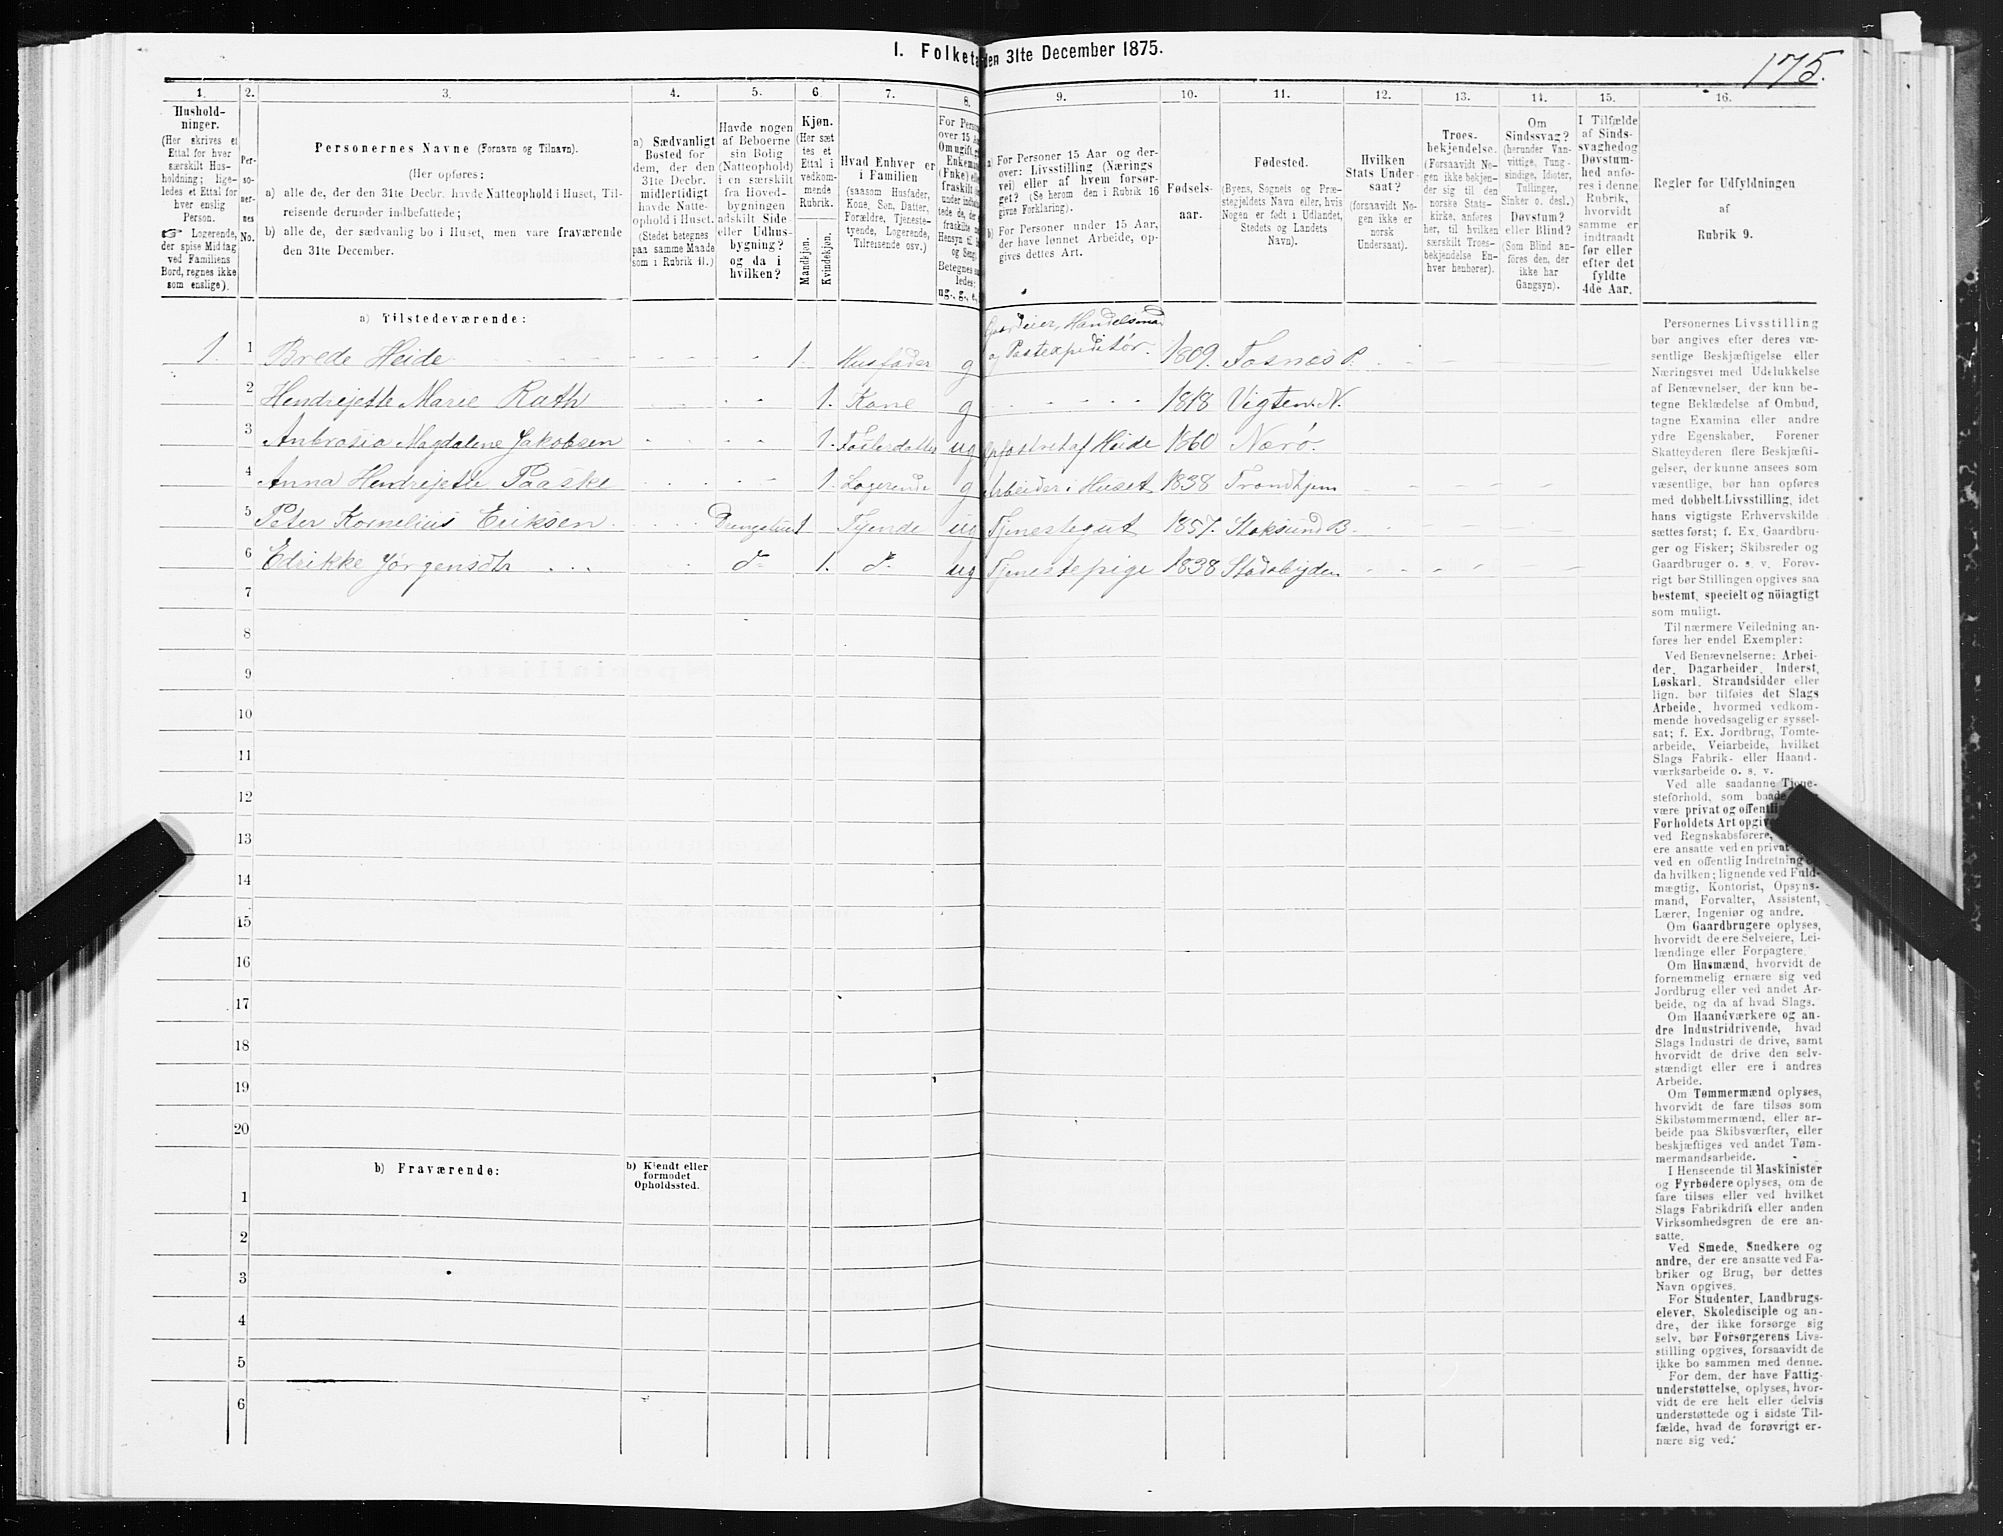 I. Folketa den 31te December 1875.
175.
1. 2. 3. 4. 5. 6. 7. 8. 9. 10. 11. 12. 13. 14. 15. 16.
Hushold-
ninger.
(Her skrives et
Ettal for hver
særskilt Hus-
holdning; lige-
ledes et Ettal for
hver enslig
Person.
☞ Logerende,
der spise Middag
ved Familiens
Bord, regnes ikke
som enslige).
Per-
so-
ner-
nes
No.
Personernes Navne (Fornavn og Tilnavn).
(Her opføres:
a) alle de, der den 31te Decbr. havde Natteophold i Huset, Til-
reisende derunder indbefattede;
b) alle de, der sædvanlig bo i Huset, men vare fraværende
den 31te December.
a) Sædvanligt
Bosted for
dem, der den
31te Decbr.
midlertidigt
havde Natte-
ophold i Huset.
(Stedet betegnes
paa samme Maade
som i Rubrik 11.)
Havde nogen
af Beboerne
sin Bolig
(Natteophold)
i en særskilt
fra Hoved-
bygningen
adskilt Side-
eller Udhus-
bygning?
og da i
hvilken?
Kjøn.
(Her sæt-
tes et
Ettal i
vedkom-
mende
Rubrik.
Mandkjøn.
Kvindekjøn.
Hvad Enhver er
i Familien
(saasom Husfader,
Kone, Søn, Datter,
Forældre, Tjeneste-
tyende, Logerende,
Tilreisende osv.)
For Person
over 15 Aar
Om ugift, g
Enkemand
(Enke) eller
fraskilt
Betegnes saa-
ledes:
ug., g., e.,
a) For Personer 15 Aar og der-
over: Livsstilling (Nærings
vei) eller af hvem forsør-
get? (Se herom den i Rubrik 16
givne Forklaring).
b) For Personer under 15 Aar,
der have lønnet Arbeide, op-
gives dettes Art.
Fødsels-
aar.
Fødested.
(Byens, Sognets og Præ-
stegjeldets Navn eller, hvis
Nogen er født i Udlandet,
Stedets og Landets
Navn).
Hvilken
Stats Under-
saat?
(forsaavidt No-
gen ikke er
norsk
Undersaat).
Troes-
bekjendelse.
(Forsaavidt No-
gen ikke bekjen-
der sig til den
norske Stats-
kirke, anføres
her, til hvilken
særskilt Troes-
bekjendelse En-
hver henhører).
Om
Sindssvag?
(herunder Van-
vittige, Tung-
sindige, Idioter,
Tullinger,
Sinker o. desl.)
Døvstum?
eller Blind?
(Som Blind an-
føres den, der
ikke har
Gangsyn).
I Tilfælde
af Sinds-
svaghed og
Døvstum-
hed anfø-
res i denne
Rubrik,
hvorvidt
samme er
indtraadt
før eller
efter det
fyldte
4de Aar.
Regler for Udfyldningen
af
Rubrik 9.
a) Tilstedeværende:
Gaardeier, Handelsmand
1. 1 Brede Heide 1. Husfader g og Postexpeditør. 1809. Fosnes P.
2 Hendrejette Marie Rath 1. Kone g 1818 Vigten N.
3 Anbrosia Magdalene Jakobsen 1. Fosterdatter ug Opfostret af Heide 1860 Nærø.
4 Anna Hendrejette Paaske 1. Logerende g Arbeider i Huset 1838 Trondhjem
5 Peter Kornelius Eriksen. Drengestue 1 Tyende ug Tjenestegut 1857. Stoksund B.
6 Edrikke Jørgensdtr do 1. do ug Tjenestepige 1838 Stadsbygden
7
8
9
10
11
12
13
14
15
16
17
18
19
20
b) Fraværende:
b) Kjendt eller
formodet
Opholdssted.
1
2
3
4
5
6
Personernes Livsstilling
bør angives efter deres væ-
sentlige Beskjæftigelse eller
Næringsvei med Udelukkelse
af Benævnelser, der kun be-
tegne Beklædelse af Ombud,
tagne Examina eller andre
ydre Egenskaber. Forener
Skatteyderen flere Beskjæfti-
gelser, der kunne ansees som
væsentlige, bør han opføres
med dobbelt Livsstilling, idet
hans vigtigste Erhvervskilde
sættes først; f. Ex. Gaardbru-
ger og Fisker; Skibsreder og
Gaardbruger o. s. v. Forøv-
rigt bør Stillingen opgives saa
bestemt, specielt og nöiagtigt
som muligt.
Til nærmere Veiledning an-
føres her endel Exempler:
Ved Benævnelserne: Arbei-
der, Dagarbeider, Inderst,
Løskarl, Strandsidder eller
lign. bør tilføies det Slags
Arbeide, hvormed vedkom-
mende hovedsagelig er syssel-
sat; f. Ex. Jordbrug, Tomte-
arbeide, Veiarbeide, hvilket
Slags Fabrik- eller Haand-
værksarbeide o. s. v.
Ved alle saadanne Tjene-
steforhold, som baade
være privat og offentli
Forholdets Art opgive
ved Regnskabsførere,
ere ansatte ved en privat
ved en offentlig Indretning
da hvilken; lignende ved Fuld-
mægtig, Kontorist, Opsyns-
mand, Forvalter, Assistent,
Lærer, Ingeniør og andre.
Om Gaardbrugere oplyses,
hvorvidt de ere Selveiere, Lei-
lændinge eller Forpagtere.
Om Husmænd, hvorvidt de
fornemmelig ernære sig ved
Jordbrug eller ved andet Ar-
beide, og da af hvad Slags.
Om Haandværkere og an-
dre Industridrivende, hvad
Slags Industri de drive, samt
hvorvidt de drive den selv-
stændigt eller ere i andres
Arbeide.
Om Tømmermænd oplyses,
hvorvidt de fare tilsøs som
Skibstømmermænd, eller ar-
beide paa Skibsværfter, eller
beskjæftiges ved andet Tøm-
mermandsarbeide.
I Henseende til Maskinister
og Fyrbødere oplyses, om de
fare tilsøs eller ved hvilket
Slags Fabrikdrift eller anden
Virksomhedsgren de ere an-
satte.
Ved Smede, Snedkere og
andre, der ere ansatte ved Fa-
briker og Brug, bør dettes
Navn opgives.
For Studenter, Landbrugs-
elever, Skoledisciple og an-
dre, der ikke forsørge sig
selv, bør Forsørgerens Livs-
stilling opgives, forsaavidt de
ikke bo sammen med denne.
For dem, der have Fattig-
understøttelse, oplyses, hvor-
vidt de ere helt eller delvis
understøttede og i sidste Til-
fælde, hvad de forøvrigt er-
nære sig ved.